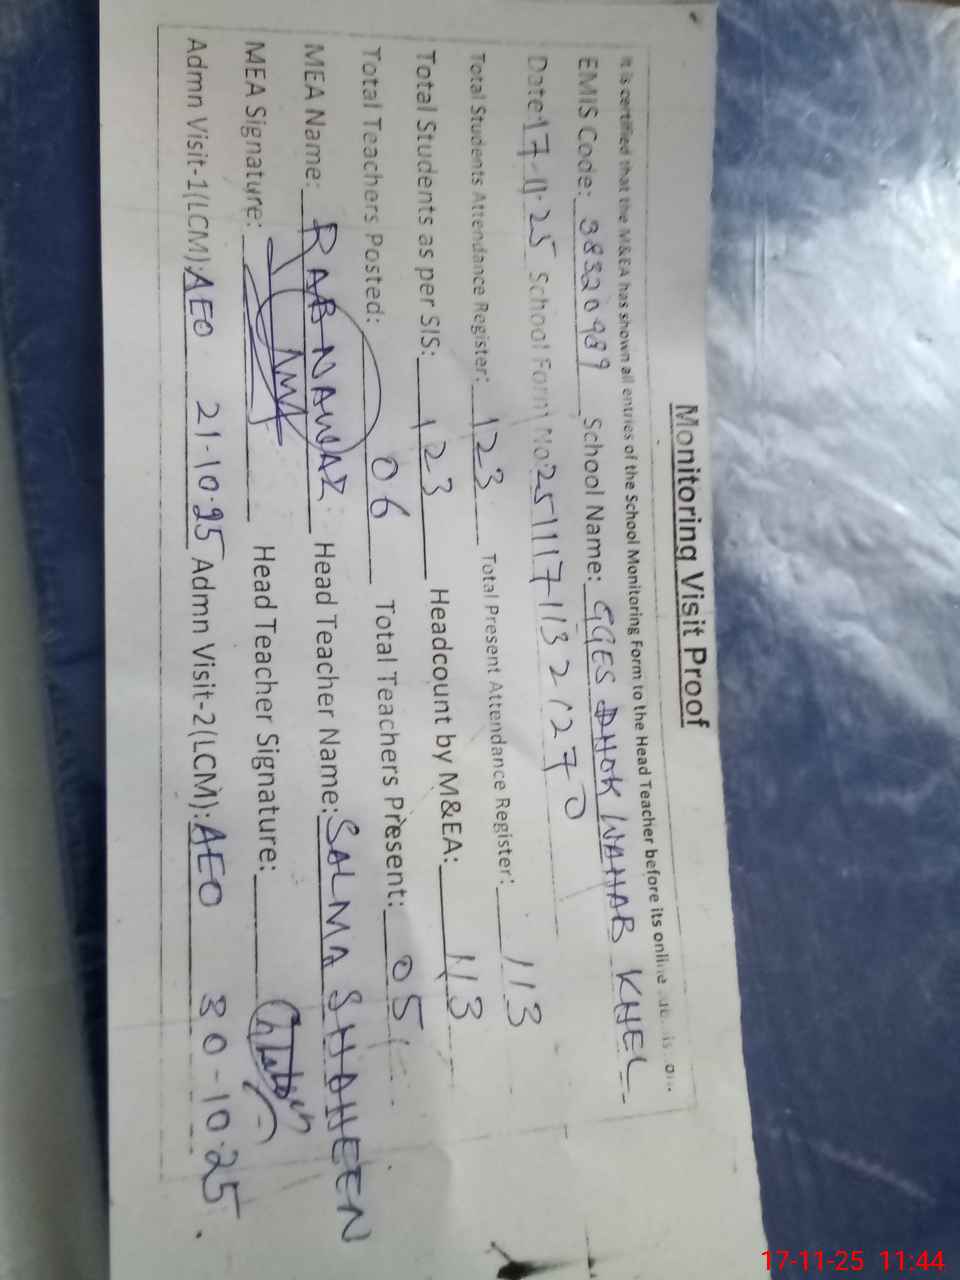 Monitoring Visit Proof
It is certified that the M&EA has shown all entries of the School Monitoring Form to the Head Teacher before its online
EMIS Code: 38320989 School Name: GGES DHOK WAHAB KHEL
Date 17-11-25 School Form No 25111711321270
Total Students Attendance Register: 123 Total Present Attendance Register: 113
Total Students as per SIS: 123 Headcount by M&EA: 113
Total Teachers Posted: 06 Total Teachers Present: 05
MEA Name: RAB NAWAZ Head Teacher Name: SALMA SHAHEEN
MEA Signature: Head Teacher Signature:
Admn Visit-1(LCM): AEO 21-10-25 Admn Visit-2(LCM): AEO 30-10-25
17-11-25 11:44